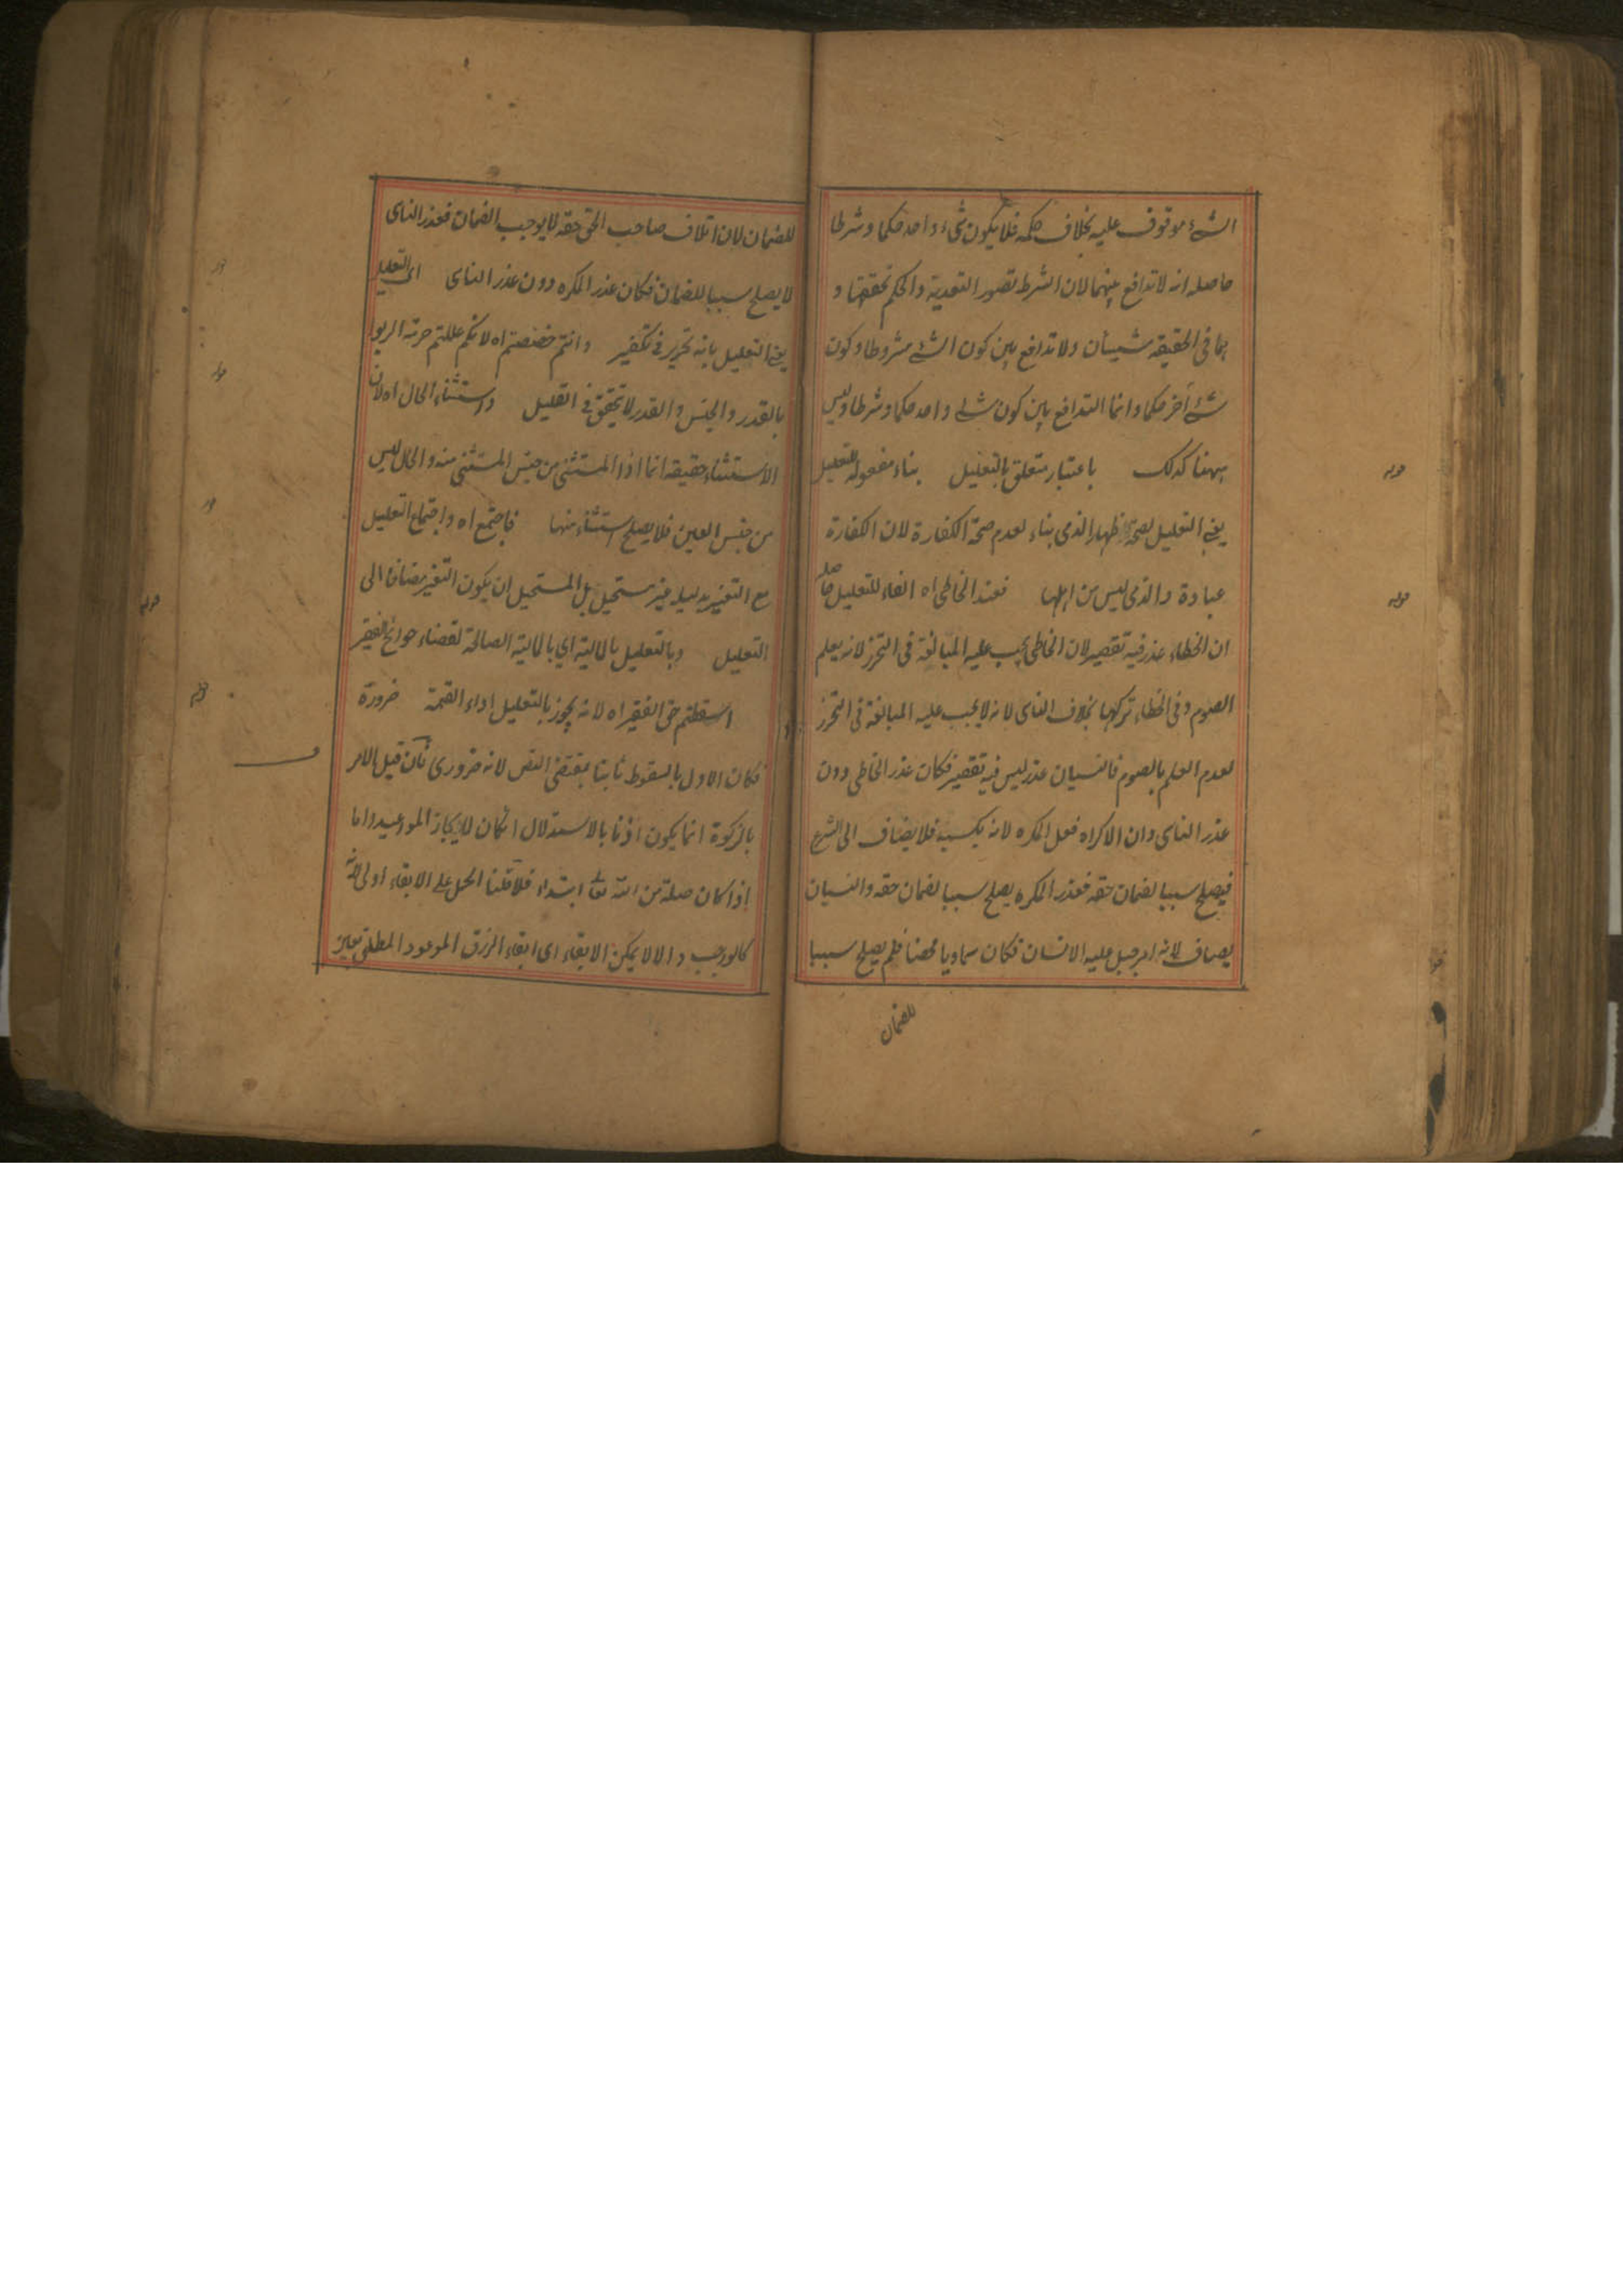 الشئ موقوف عليه بخلاف حكمه فلا يكون شئ واحد حكما وشرطا
حاصله انه لا تدافع بينهما لان الشرط تصور التعدية والحكم تحققها و
هما في الحقيقة شيئان ولا تدافع بين كون الشئ مشروطا وكون
شئ آخر حكما وانما التدافع بين كون شئ واحد حكما وشرطا وليس
ههنا كذلك باعتبار متعلق بالتعليل بناء مفعوله للتعليل
يعني التعليل لصحة ظهار الذمي بناء لعدم صحة الكفارة لان الكفارة
عبادة والذمي ليس من اهلها فعند الخاطي اه الفاء للتعليل حاصله
ان الخطاء عذر فيه تقصير لان الخاطي يجب عليه المبالغة في التحرز لانه يعلم
الصوم وفي الخطاء تركها بخلاف الناسي لانه لا يجب عليه المبالغة في التحرز
لعدم العلم بالصوم فالنسيان عذر ليس فيه تقصير فكان عذر الخاطي دون
عذر الناسي وان الاكراه فعل المكره لانه يكسبه فلا يضاف الى الشرع
فيصلح سببا لضمان حقه فعذر المكره يصلح سببا لضمان حقه والنسيان
يضاف لانه امر جبل عليه الانسان فكان سماويا محضا فلم يصلح سببا
للضمان
قوله
قوله
للضمان لان اتلاف صاحب الحق حقه لا يوجب الضمان فعذر الناسي
لا يصلح سببا للضمان فكان عذر المكره دون عذر الناسي اي التعليل
يعني التعليل بانه تحرير في تكفير وانتم خصصتم اه لانكم عللتم حرمة الربوا
بالقدر والجنس والقدر لا يتحقق في القليل واستثناء الحال اه لان
الاستثناء حقيقة انما اذا المستثنى من جنس المستثنى منه والحال ليس
من جنس العين فلا يصلح استثناء منها فاجتمع اه واجتماع التعليل
مع التغيير بدليله غير مستحيل بل المستحيل ان يكون التغير مضافا الى
التعليل وبالتعليل بالمالية اي بالمالية الصالحة لقضاء حوائج الفقير
اسقطتم حق الفقير اه لانه يجوز بالتعليل اداء القيمة ضرورة
فكان الاول بالسقوط ثابتا بمقتضى النص لانه ضروري فان قيل الامر
بالزكوة انما يكون اذنا بالاستدلال ان كان لايجاز المواعيد واما
اذا كان صلة من الله تعالى ابتداء فلا قلنا الحمل على الايفاء اولى لانه
كالوجب والا لا يمكن الايفاء اي ايفاء الرزق الموعود المطلق بعين
قوله
قوله
قوله
قوله
قوله